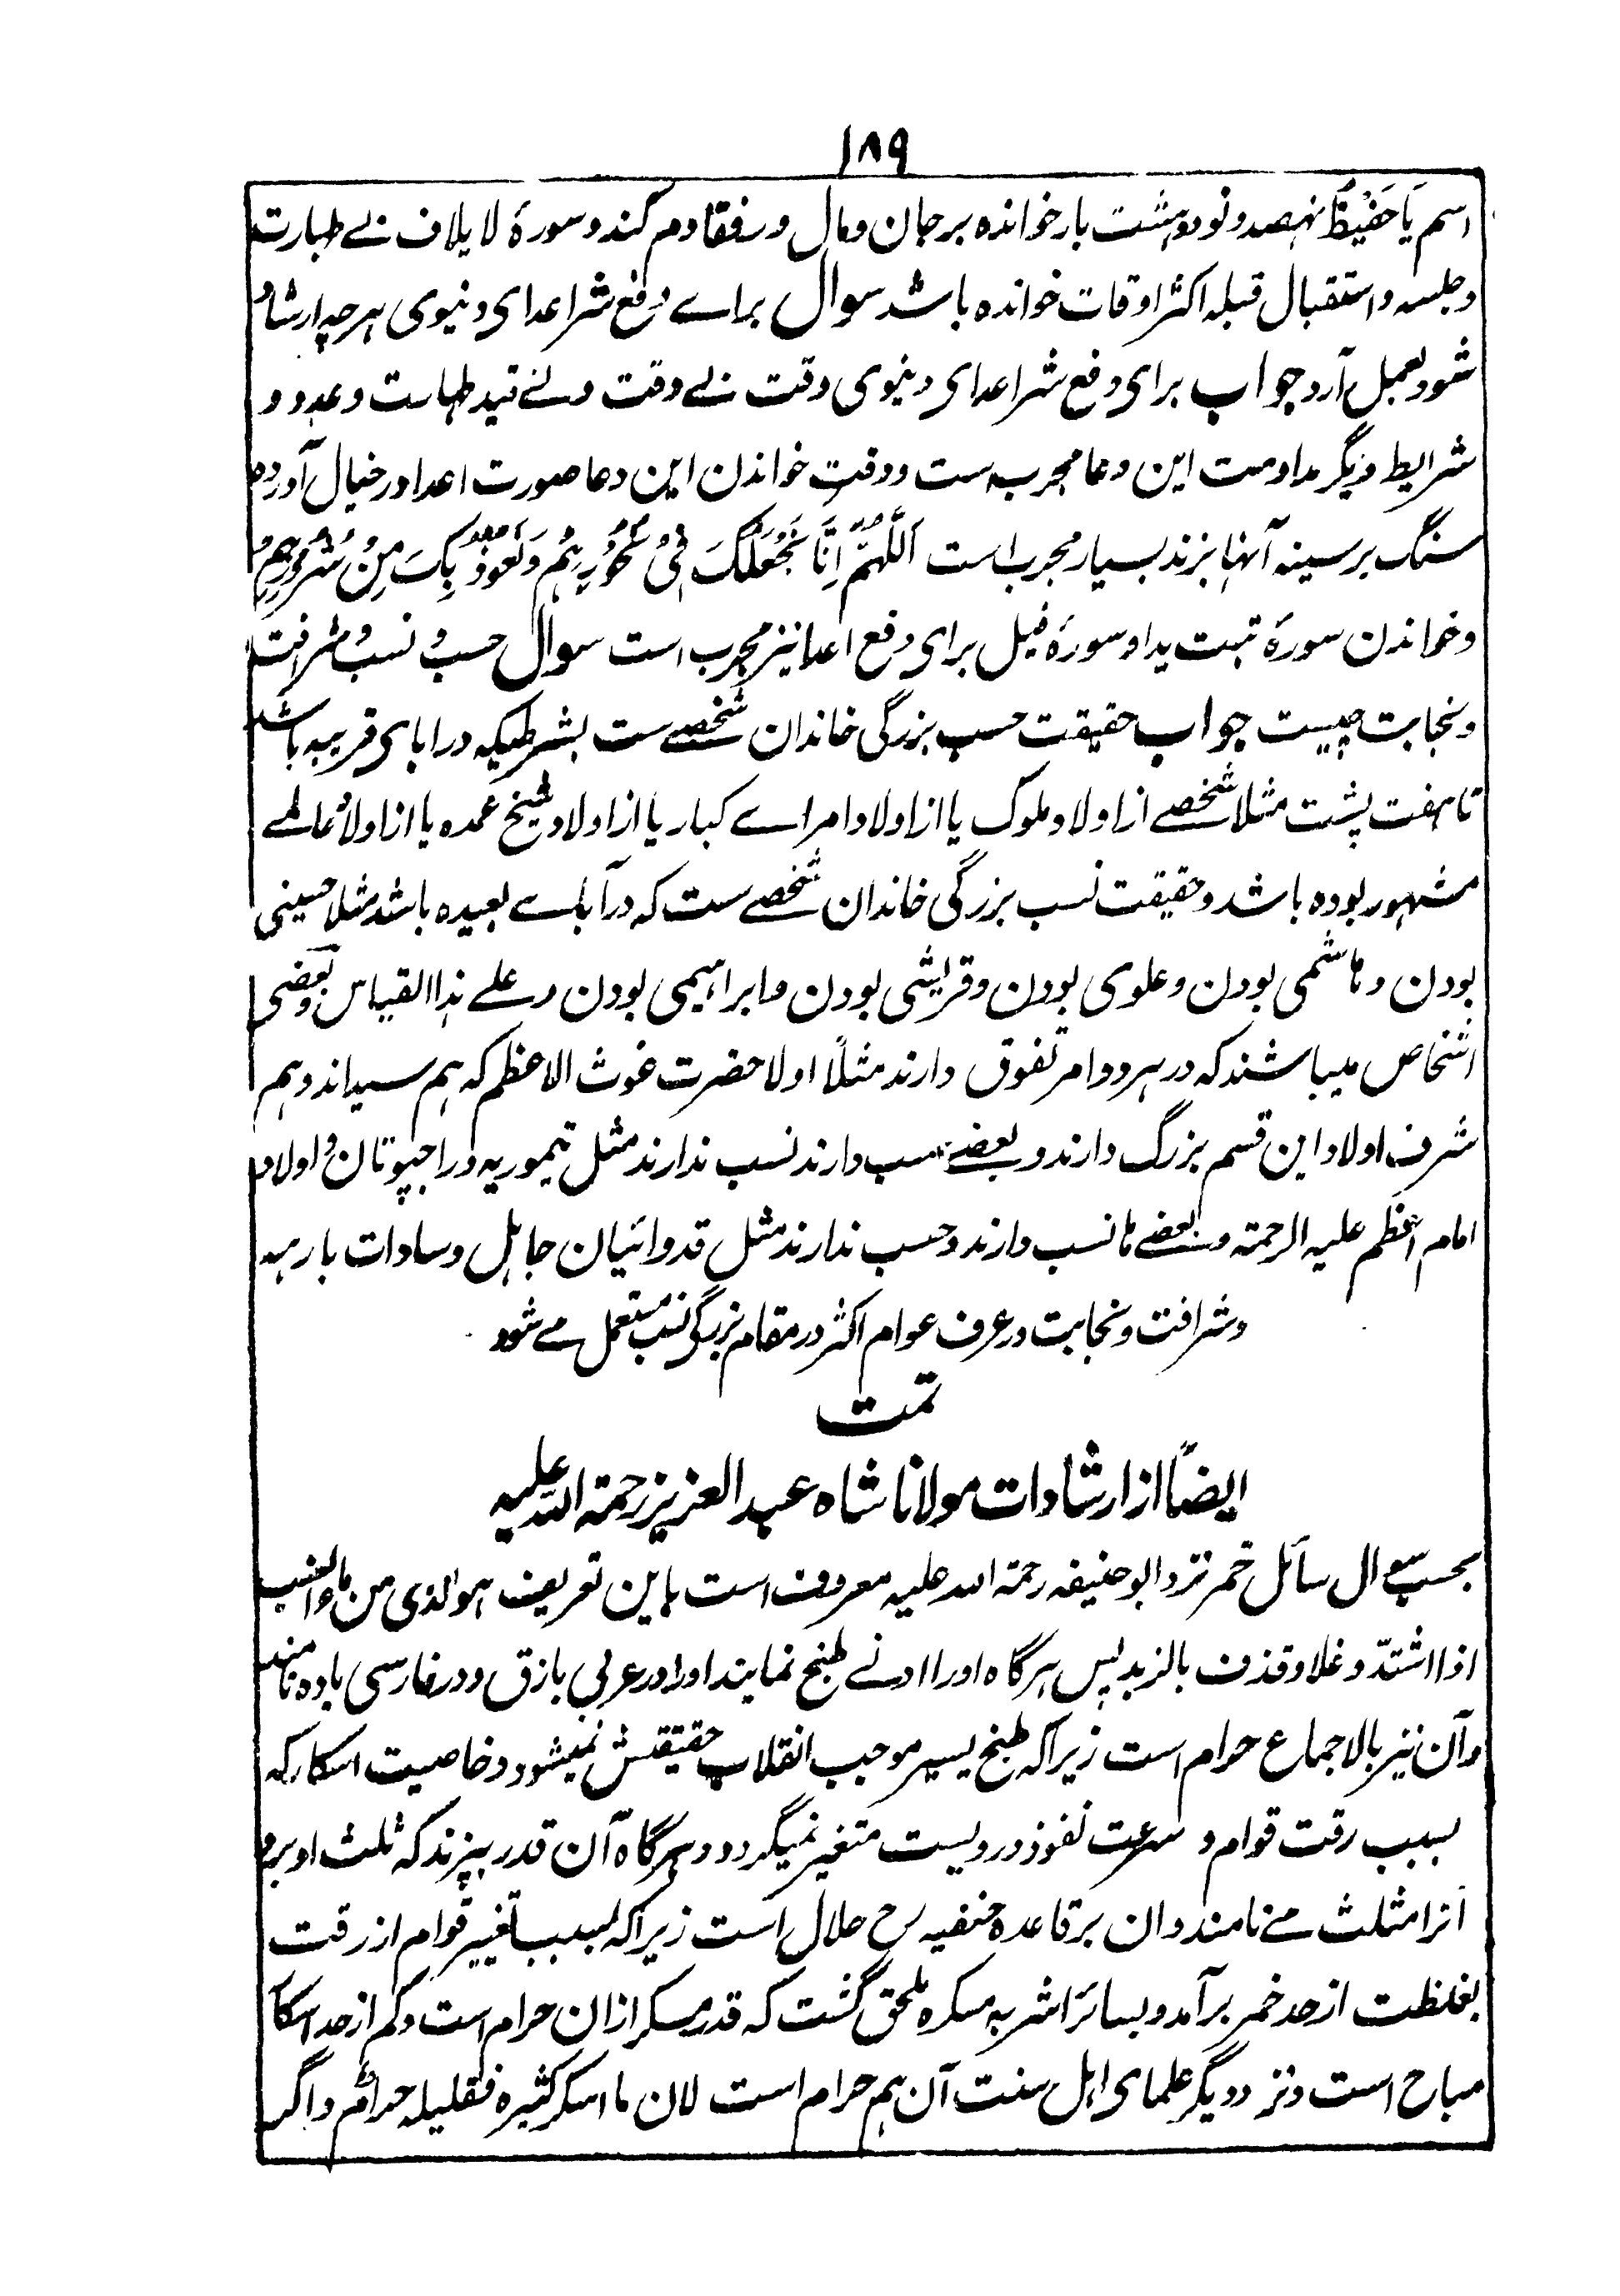 ۱۸۹
اسم یَا حَفِیْظُ نہصد و نود و ہشت بار خواندہ بر جان و مال و رفقا دم کند و سورۂ لایلاف بے طہارت
و جلسہ و استقبال قبلہ اکثر اوقات خواندہ باشد سوال براے دفع شر اعدای دنیوی ہرچہ ارشاد
شود بعمل آرد جواب برای دفع شر اعدای دنیوی وقت بے وقت و بے قید طہارت و عدد و
شرایط دیگر مداومت این دعا مجرب ست و وقت خواندن این دعا صورت اعدا در خیال آوردہ
سنگ بر سینہ آنہا بزند بسیار مجرب است اَللّٰہُمَّ اِنَّا نَجْعَلُکَ فِیْ نُحُوْرِہِمْ وَنَعُوْذُ بِکَ مِنْ شُرُوْرِہِمْ
و خواندن سورۂ تبت یدا و سورۂ فیل برای دفع اعدا نیز مجرب است سوال حسب و نسب و شرافت
و نجابت چیست جواب حقیقت حسب بزرگی خاندان شخصے ست بشرطیکہ در ابای قریبہ باشد
تا ہفت پشت مثلا شخصے از اولاد ملوک یا از اولاد امراے کبار یا از اولاد شیخ عمدہ یا از اولاد عالمے
مشہور بودہ باشد و حقیقت نسب بزرگی خاندان شخصے ست کہ در آباے بعیدہ باشد مثلا حسینی
بودن و ہاشمی بودن و علوی بودن و قریشی بودن و ابراہیمی بودن و علے ہذا القیاس و بعضی
اشخاص میباشند کہ در ہر دو امر تفوق دارند مثلاً اولاد حضرت غوث الاعظم کہ ہم سید اند و ہم
شرف اولاد این قسم بزرگ دارند و بعضے حسب دارند نسب ندارند مثل تیموریہ و راجپوتان و اولاد
امام اعظم علیہ الرحمۃ و بعضے ہا نسب دارند و حسب ندارند مثل قدوائیان جاہل و سادات بارہہ
و شرافت و نجابت در عرف عوام اکثر در مقام بزرگی نسب مستعمل مے شود
تمت
ایضاً از ارشادات مولانا شاہ عبد العزیز رحمۃ اللہ علیہ
بحسب سوال سائل خمر نزد ابو حنیفہ رحمۃ اللہ علیہ معروف است باین تعریف ہو الذی من ماء العنب
اذا اشتدّ و غلا و قذف بالزبد پس ہر گاہ او را ادنے طبخ نمایند او را در عربی باذق و در فارسی بادہ نامند
و آن نیز بالاجماع حرام است زیرا کہ طبخ یسیر موجب انقلاب حقیقتش نمیشود و خاصیت اسکار کہ
بسبب رقت قوام و سرعت نفوذ در ویست متغیر نمیگردد و ہرگاہ آن قدر بپزند کہ ثلث او برود
آنرا مثلث مے نامند و ان بر قاعدہ حنفیہ رح حلال است زیرا کہ بسبب تغییر قوام از رقت
بغلظت از حد خمر برآمد و بسائر اشربہ مسکرہ ملحق گشت کہ قدر مسکر ازان حرام است و کم از حد اسکار
مباح است و نزد دیگر علمای اہل سنت آن ہم حرام است لان ما اسکر کثیرہ فقلیلہ حرام و اگر